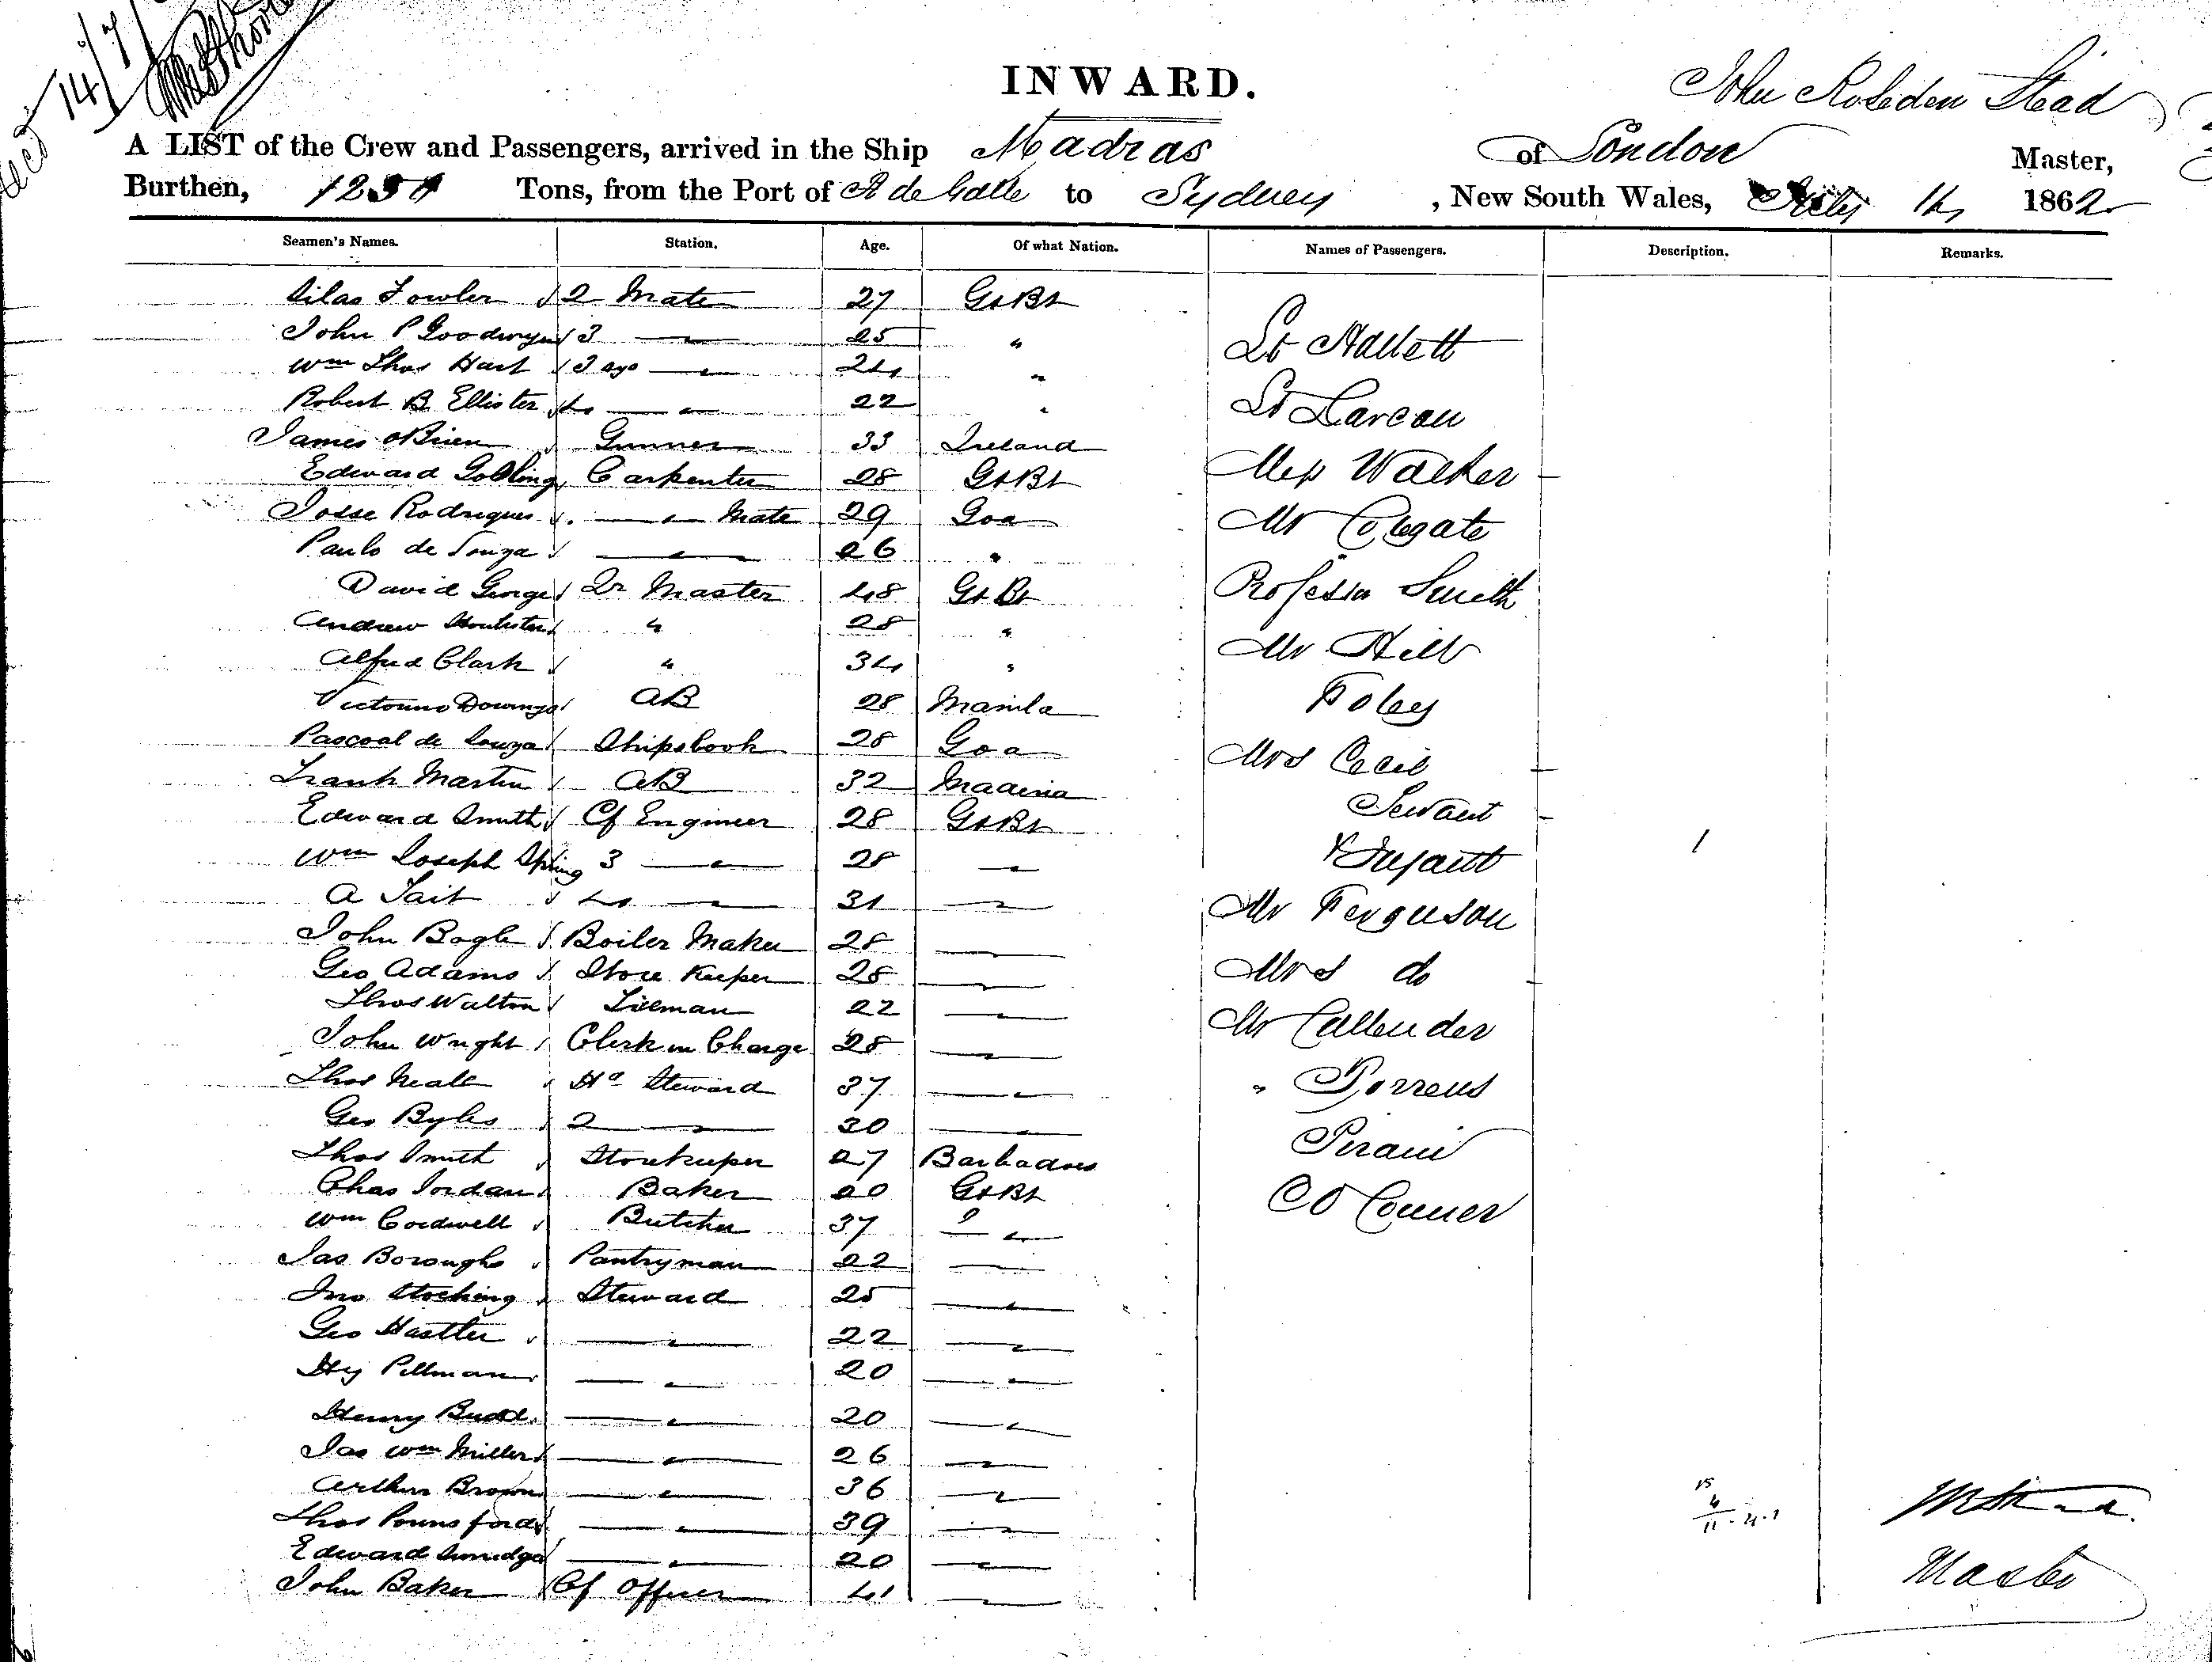 Recd 14/7/
INWARD.
John Roseden Stead
A LIST of the Crew and Passengers, arrived in the Ship Madras of London Master,
Burthen, Tons, from the Port of P. de Galle to Sydney, New South Wales, July 14 1862
Seamen's Names. Station. Age. Of what Nation. Names of Passengers. Description. Remarks.
Silas Fowler 2 Mate 27 Gt Bt
John P Goodwyn 3 " 25 " Lt Hallett
Wm Thos Hart 3 " 24 "
Robert B Ellister 4 " 22 " Lt
James OBrien Gunner 33 Ireland
Edward Carpenter 28 Gt Bt Walker
Josse Rodrigues " Mate 29 Goa Mr Colgate
Paulo de Souza " 26 "
David George Qr Master 48 Gt Bt Professor Smith
Andrew " 28 "
Alfred Clark " 34 " Mr Hill
Victorino AB 28 Manila Foley
Pascoal de Souza Ships Cook 28 Goa Mrs Cecil
Frank Martin AB 32 Madeira
Edward Smith Cf Engineer 28 Gt Bt Servant
Wm Joseph Spring 3 " 28 " & Infant 1
A Tait 4 " 31 " Mr Ferguson
John Bogle Boiler Maker 28 "
Geo Adams Store Keeper 28 " Mrs do
Thos Walton Fireman 22 "
John Wright Clerk in Charge 28 " Mr Callender
Thos Neall Hd Steward 37 " " Torrens
Geo Byles 2 " 30 "
Thos Smith Storekeeper 27 Barbadoes Pirani
Chas Jordan Baker 20 Gt Bt O Conner
Wm Cordwell Butcher 37 "
Jas Boroughs Pantryman 22 "
Jno Stocking Steward 25 "
Geo Hastler " 22 "
Hy Pillman " 20 "
Henry Budd " 20 "
Jas Wm Miller " 26 "
Arthur Brown " 36 "
Thos Pounsford " 39 "
Edward " 20 "
John Baker Cf Officer 41 "
Master